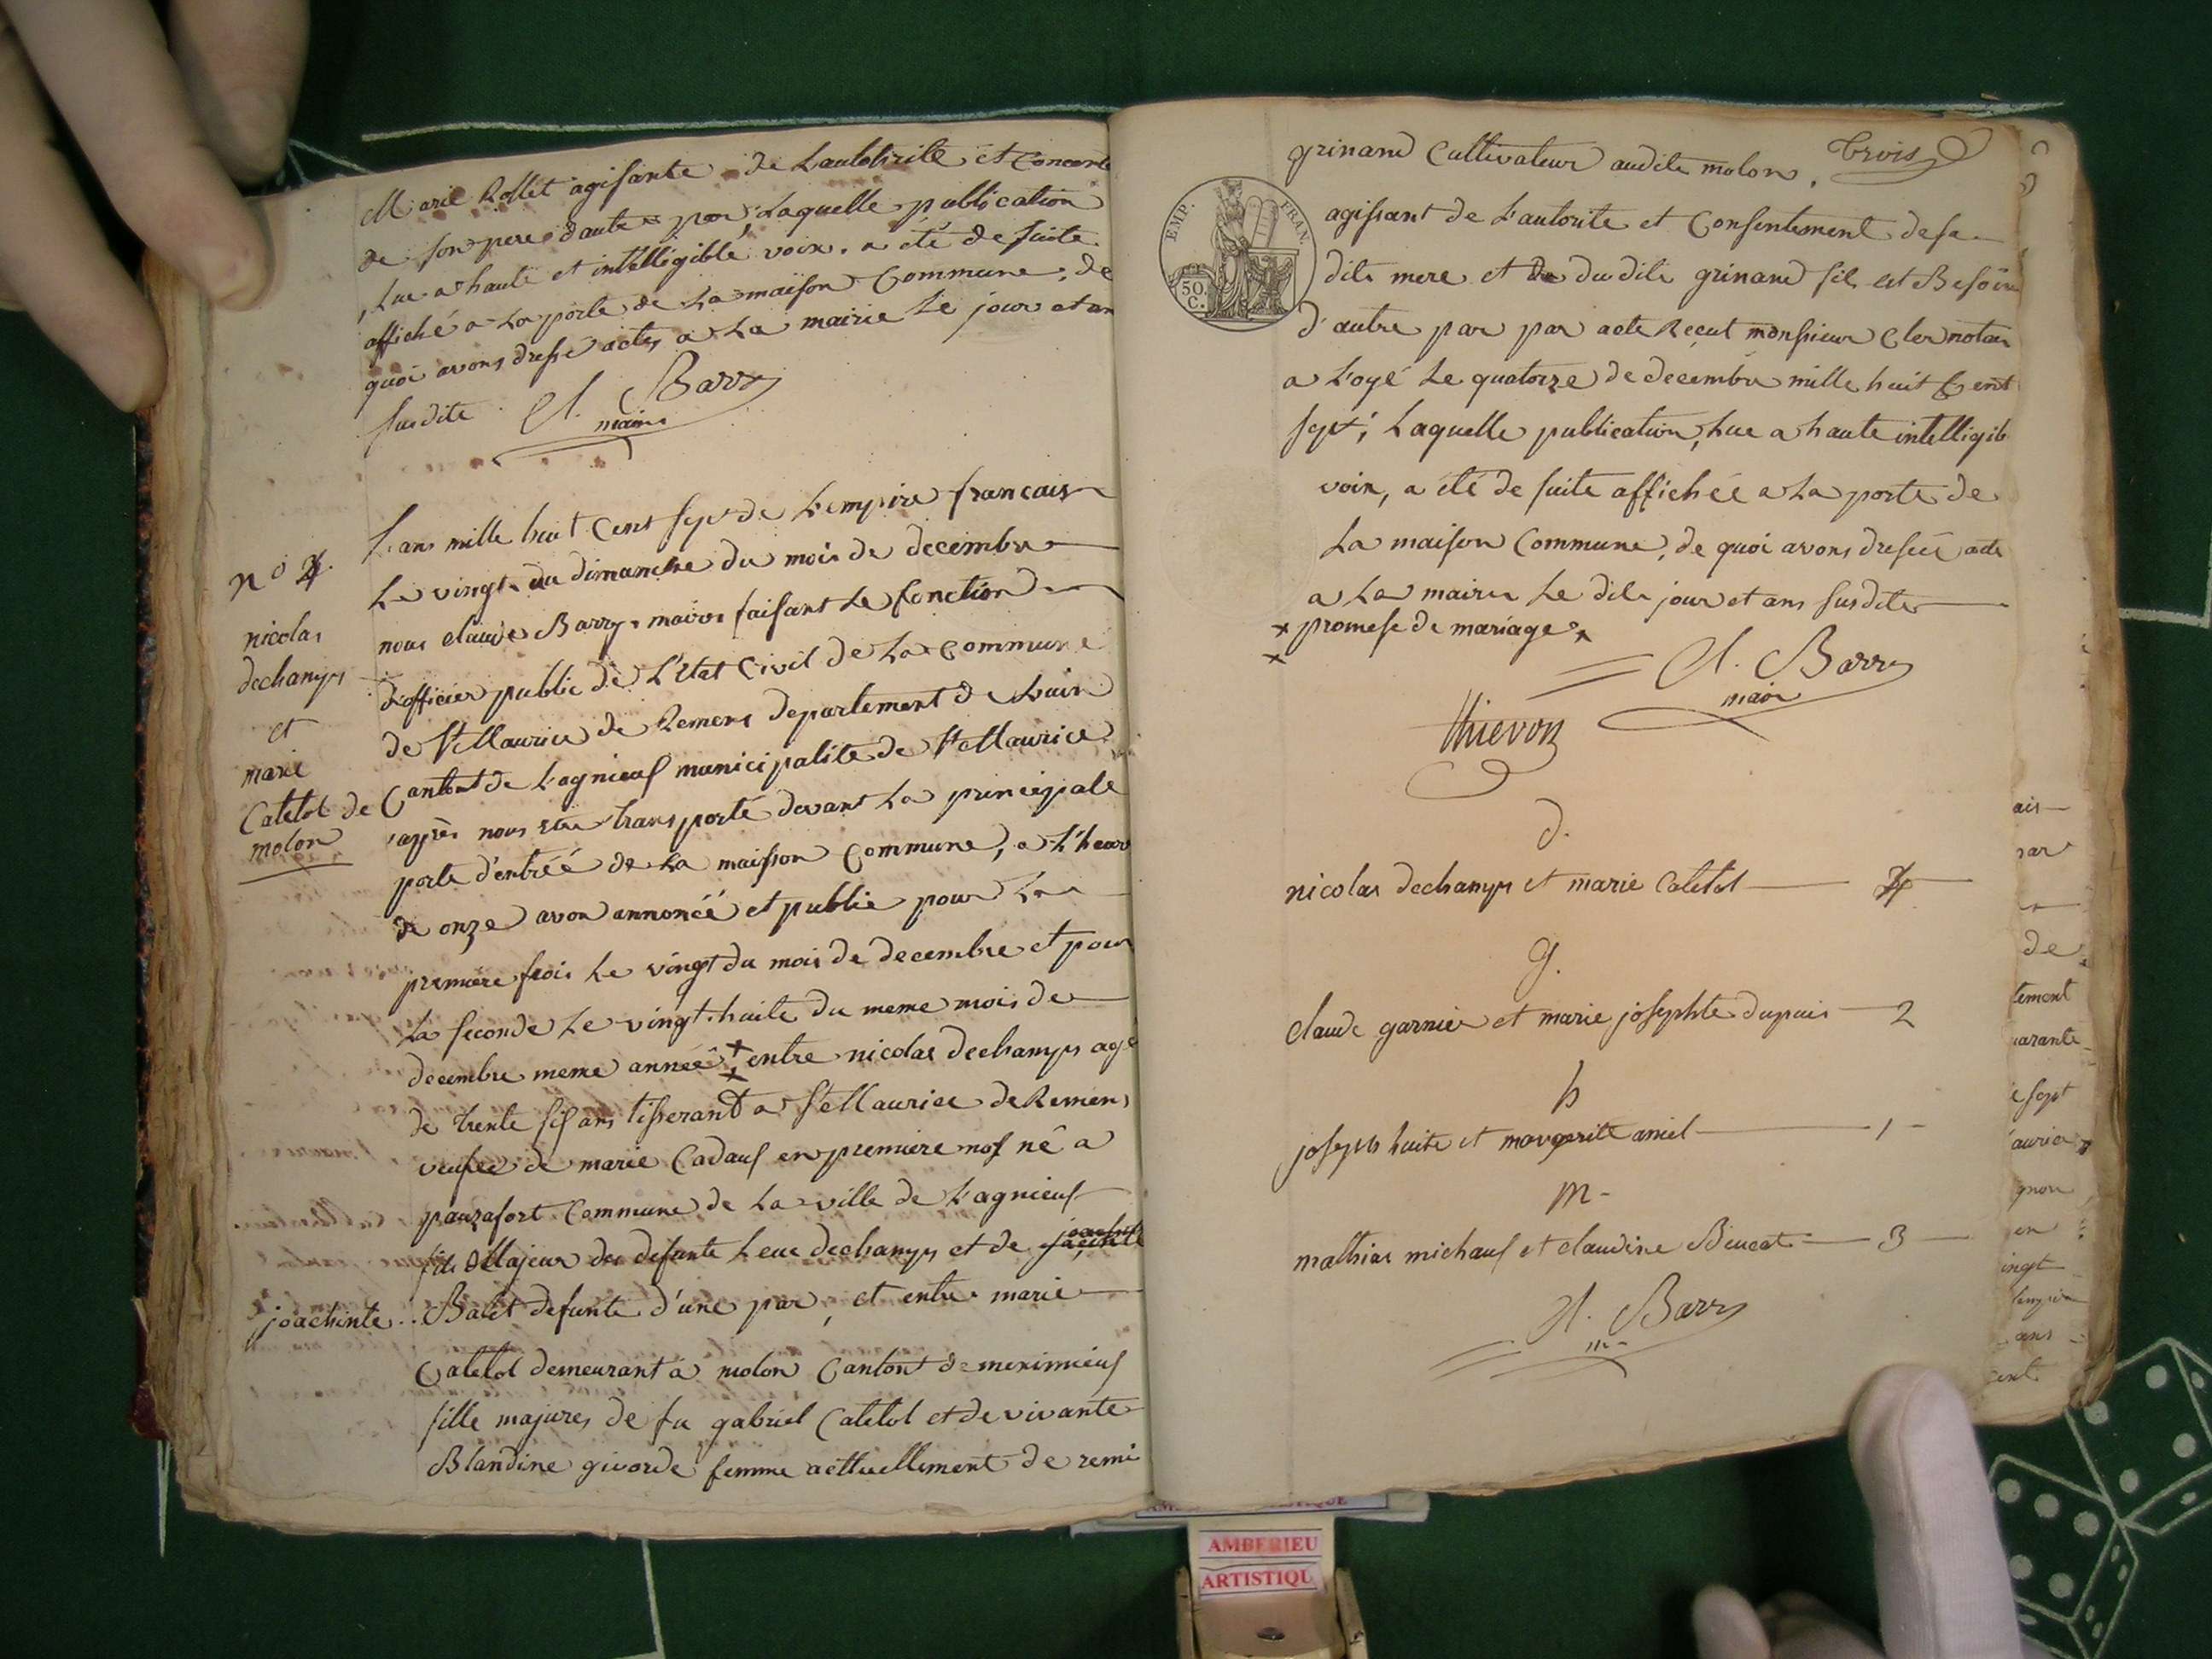 Marie Rollet agisante de Lautorite et Concent
de son pere d'autre par, Laquelle publication
, Lue a haute et intelligible voix. a été de suite
affiché a La porte de La maison Commune, de
quoi avons dressé actes a La mairie Le jour et an
susdite Cl. Barry
maire
L'ans mille huit Cent sept de L'empire francais
Le vingt du dimanche du mois de decembre
nous claude Barry maire faisant Le fonction
d'officier public de L'Etat Civil de La Commune
de St Maurice de Remens departement de Lain
Cantont de Lagnieus municipalite de St Maurice
après nous etre transporté devant La principale
porte d'entréé de La maisson Commune, a L'heure
de onze avon annoncéé et publie pour La
premiere fois Le vingt du mois de decembre et pour
La seconde Le vingt huite du meme mois de
decembre meme annéé, entre nicolas dechamps agé
de trente sis ans tisserant a St Maurice de Remens
veufee de marie Cadaus en premiere nos né a
pauzafort Commune de La ville de L'agnieus
fils Majeur de defunte Leue dechamps et de
Balet defunte d'une par, et entre marie
Catelol demeurant a molon Cantont de meximieus
fille majures de fu gabriel Catelol et de vivante
Blandine givorde femme acttuellement de remi
n° 4.
nicolas
dechamps
et
marie
Catelol de
molon
joachinte
grinand Cultivateur audite molon. trois
EMP. FRAN.
50 C.
agissant de L'autorite et Consentement de sa
dite mere et du dite grinand sil est Besoin
d'autre par par acte Recut monsieur Cler notair
a Loyé Le quatorze de decembre mille huit Cent
sept, Laquelle publication, Lue a haute intelligib
voix, a été de suite affichée a La porte de
La maison Commune, de quoi avons dressée acte
a La mairie Le dite jour et ans susdite
x promese de mariage x
x
Cl. Barry
maire
Thievon
d.
nicolas dechamps et marie Catelol 4
g.
claude garnier et marie josephte dupuis 2
h
joseph huite et margerite amiel 1
m
mathias michaus et claudine Beucat 3
Cl. Barry
m
ais
par
de
tement
uarante
e sept
aurice
gnon
en
ingt
Lempire
ans
cent
AMBERIEU
ARTISTIQU